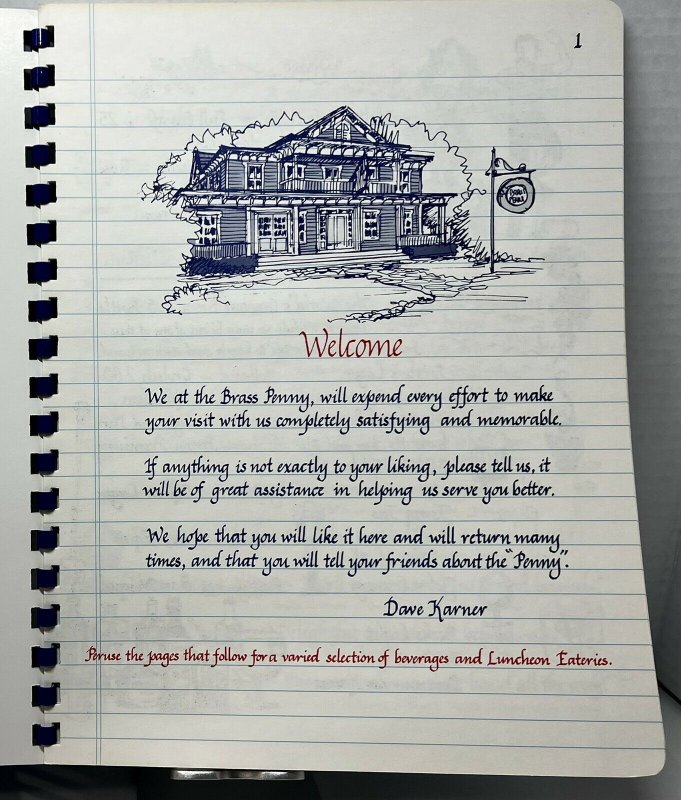 1
Welcome
We at the Brass Penny, will expend every effort to make
your visit with us completely satisfying and memorable.
If anything is not exactly to your liking, please tell us, it
will be of great assistance in helping us serve you better.
We hope that you will like it here and will return many
times, and that you will tell your friends about the "Penny".
Dave Karner
Peruse the pages that follow for a varied selection of beverages and Luncheon Eateries.